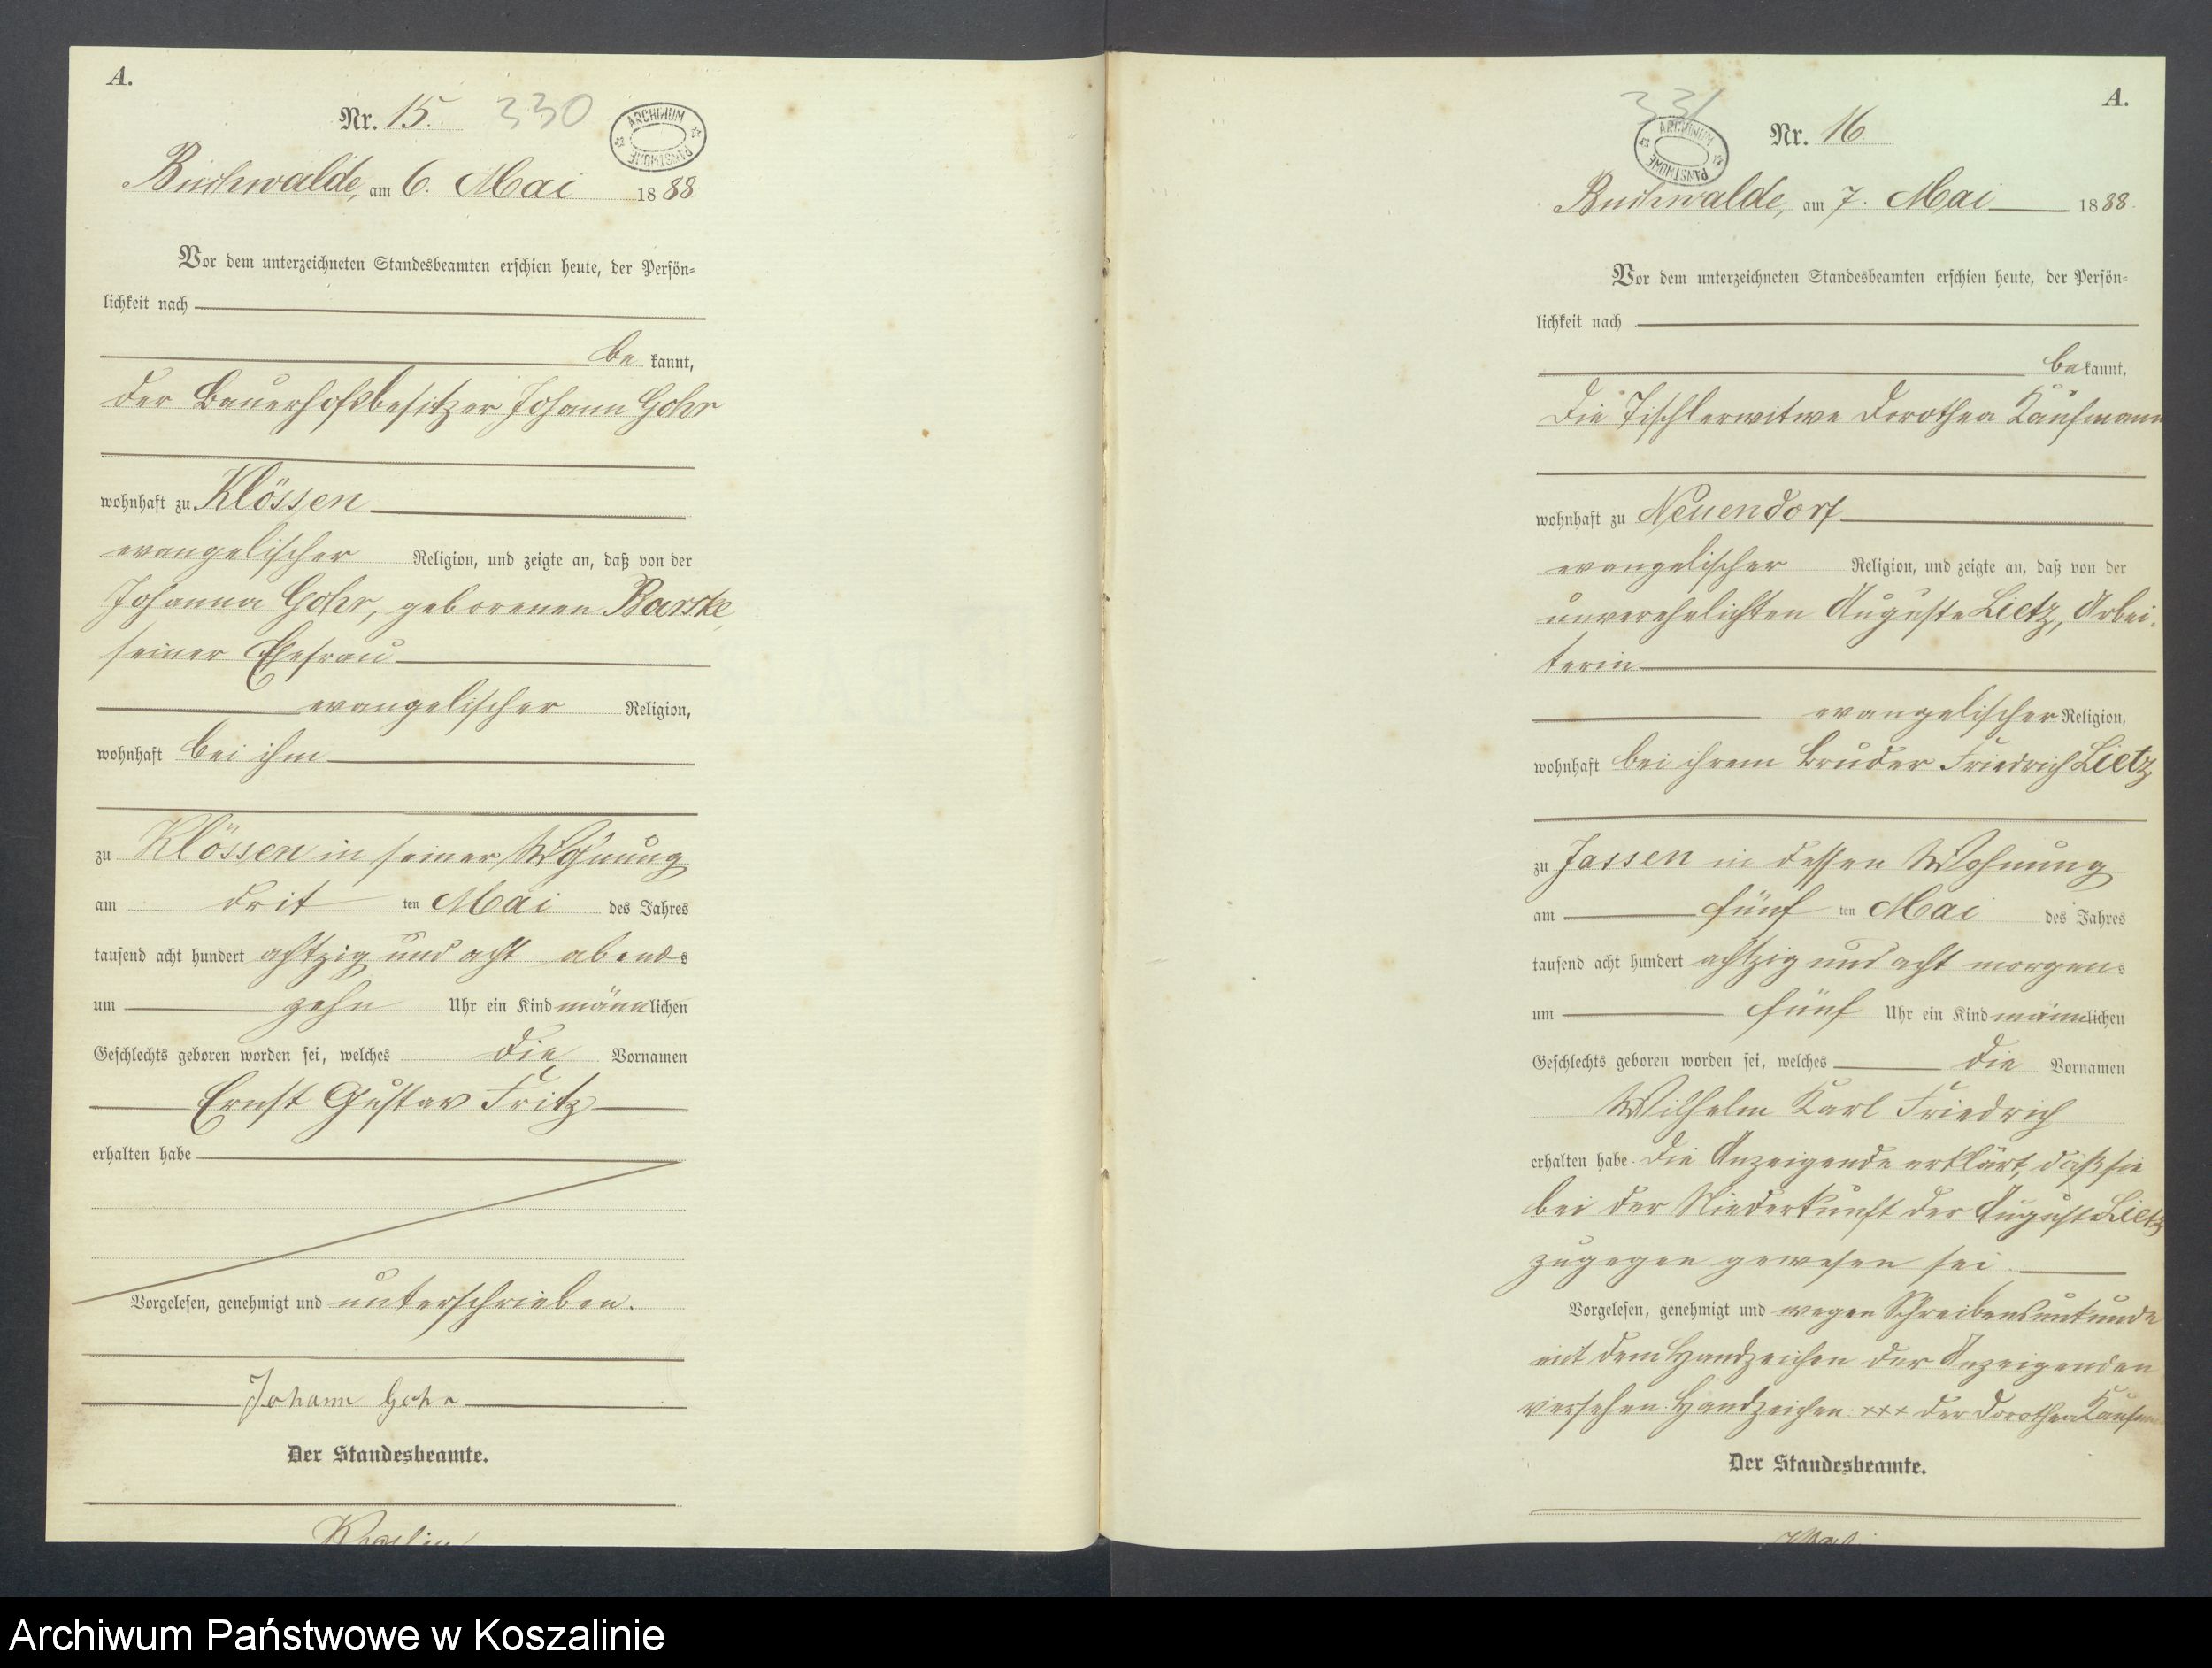 A.
Nr. 15. 330
ARCHIWUM PAŃSTWOWE
Buchwalde, am 6. Mai 1888
Vor dem unterzeichneten Standesbeamten erschien heute, der Persön-
lichkeit nach
be kannt,
der Bauerhofsbesitzer Johann Gohr
wohnhaft zu Klössen
evangelischer Religion, und zeigte an, daß von der
Johanna Gohr, geborenen Barske,
seiner Ehefrau
evangelischer Religion,
wohnhaft bei ihm
zu Klössen in seiner Wohnung
am drit ten Mai des Jahres
tausend acht hundert achtzig und acht abends
um zehn Uhr ein Kind männlichen
Geschlechts geboren worden sei, welches die Vornamen
Ernst Gustav Fritz
erhalten habe
Vorgelesen, genehmigt und unterschrieben.
Johann Gohr
Der Standesbeamte.
A.
331 Nr. 16.
ARCHIWUM PAŃSTWOWE
Buchwalde, am 7. Mai 1888.
Vor dem unterzeichneten Standesbeamten erschien heute, der Persön-
lichkeit nach
bekannt,
die Tischlerwitwe Dorothea Kaufmann
wohnhaft zu Neuendorf
evangelischer Religion, und zeigte an, daß von der
unverehelichten Auguste Lietz, Arbei-
terin
evangelischer Religion,
wohnhaft bei ihrem Bruder Friedrich Lietz
zu Jassen in dessen Wohnung
am fünf ten Mai des Jahres
tausend acht hundert achtzig und acht morgens
um fünf Uhr ein Kind männlichen
Geschlechts geboren worden sei, welches die Vornamen
Wilhelm Karl Friedrich
erhalten habe. Die Anzeigende erklärt, daß sie
bei der Niederkunft der Auguste Lietz
zugegen gewesen sei.
Vorgelesen, genehmigt und wegen Schreibensunkunde
mit dem Handzeichen der Anzeigenden
versehen. Handzeichen: xxx der Dorothea Kaufmann
Der Standesbeamte.
Archiwum Państwowe w Koszalinie